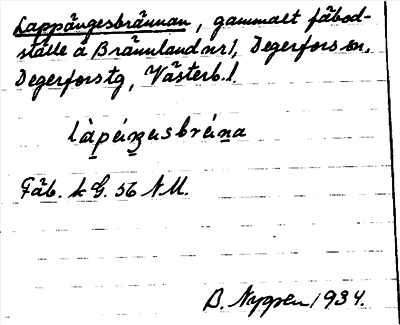 Lappängesbrännan, gammalt fäbod-
ställe å Brännland nr 1, Degerfors sn,
Degerfors tg, Västerb. l.
Fäb. k G. 56 NU.
B. Nygren 1934.